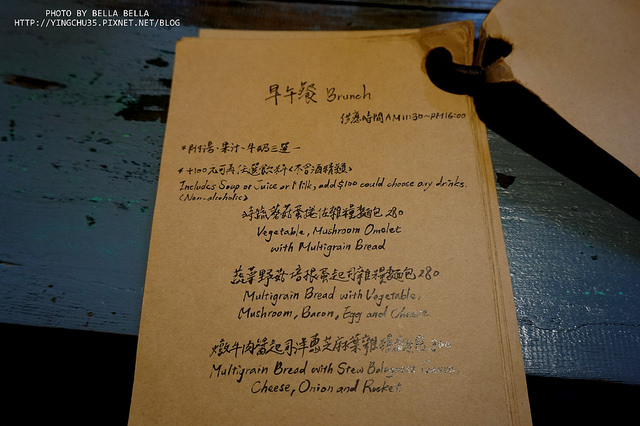 PHOTO BY BELLA BELLA
HTTP://YINGCHU35.PIXNET.NET/BLOG
早午餐 Brunch
供應時間AM11:30~PM16:00
*附湯、果汁、牛奶三選一
*+100元可再任選飲料<不含酒精類>
Includes Soup or Juice or Milk, add $100 could choose any drinks.
<Non-alcoholic>
時蔬蘑菇蛋捲佐雜糧麵包 280
Vegetable, Mushroom Omelet
with Multigrain Bread
蔬菜野菇培根蛋起司雜糧麵包 280
Multigrain Bread with Vegetable,
Mushroom, Bacon, Egg and Cheese
燉牛肉醬起司洋蔥芝麻葉雜糧麵包
Multigrain Bread with Stew
Cheese, Onion and Rocket